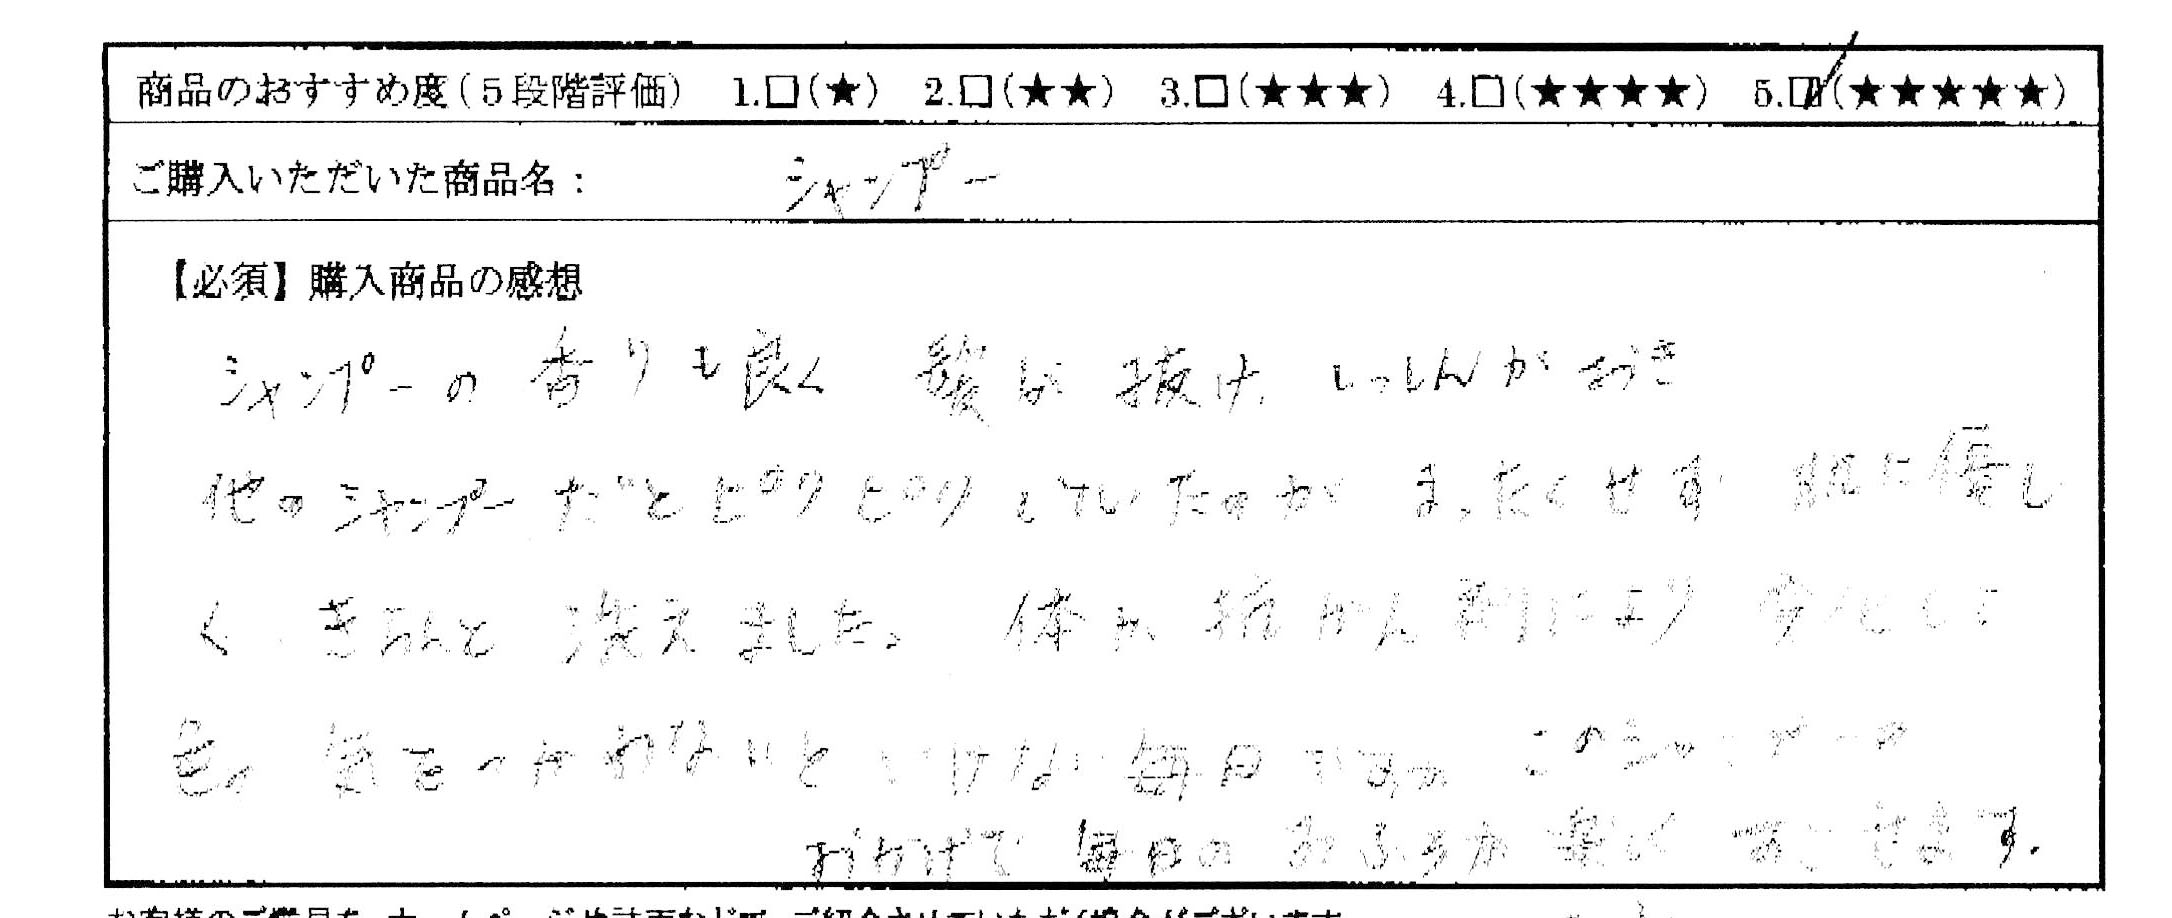 商品のおすすめ度(5段階評価) 1.□(★) 2.□(★★) 3.□(★★★) 4.□(★★★★) 5.☑(★★★★★)
ご購入いただいた商品名: シャンプー
【必須】購入商品の感想
シャンプーの香りも良く 髪が抜け、しっしんがおき
他のシャンプーだとピリピリしていたのがまったくせず 肌に優し
く、きちんと洗えました。体が抗がん剤により変化して
色々気をつかわないといけない毎日ですが このシャンプーの
おかげで毎日のおふろが楽しくすごせます。